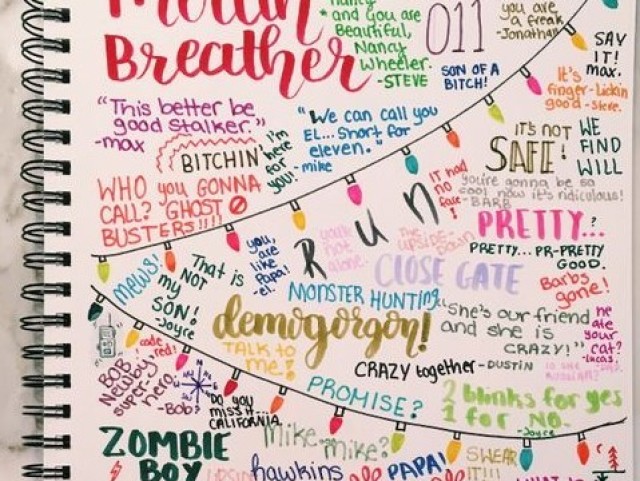 Mouth
Breather
Nancy
* and you are
Beautiful,
Nancy
Wheeler.
-STEVE
011
SON OF A
BITCH!
you are
a freak
-Jonathan
SAY
IT!
max.
It's
finger-Lickin
good -Steve.
"This better be
good stalker."
-max
BITCHIN'
I'm
here
for
you!
"We can call you
EL... Short for
eleven."
-mike
IT'S NOT
SAFE!
WE
FIND
WILL
WHO you GONNA
CALL? GHOST
BUSTERS!!!!
you're gonna be so
cool now it's ridiculous!
-BARB
IT had
no
face!
Run
you,
are
like
Papa!
-el.
walk
not
alone
The
UPSIDE-DOWN
PRETTY..?
PRETTY... PR-PRETTY
GOOD.
CLOSE GATE
Barbs
gone!
mews!
That is
NOT
my
SON!
-Joyce
MONSTER HUNTING
demogorgon!
"She's our friend
and she is
CRAZY!"
he
ate
your
cat?
-Lucas.
code
red!
TALK TO
me!
CRAZY together -DUSTIN
BOB
Newby
super-
hero
-Bob
DO you
MISS it...
CALIFORNIA
PROMISE?
2 blinks for yes
1 for No.
-Joyce
ZOMBIE
BOY
Mike. mike?
hawkins
PAPA!
SWEAR
IT!!!